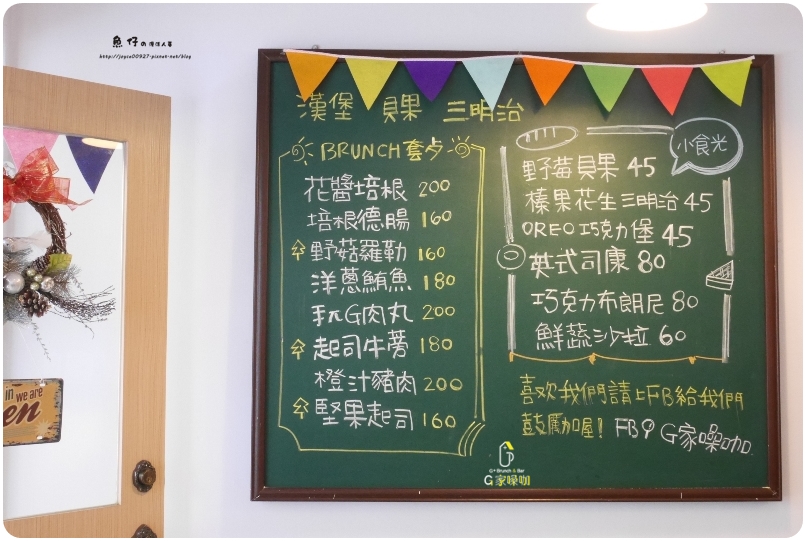 魚仔の
http://joyce00927.pixnet.net/blog
漢堡 貝果 三明治
BRUNCH套歺
花醬培根 200
培根德腸 160
野菇羅勒 160
洋蔥鮪魚 180
玩G肉丸 200
起司牛蒡 180
橙汁豬肉 200
堅果起司 160
小食光
野莓貝果 45
榛果花生三明治 45
OREO巧克力堡 45
英式司康 80
巧克力布朗尼 80
鮮蔬沙拉 60
喜欢我們請上FB給我們
鼓勵喔! FB G家嗓咖
G+ Brunch & Bar
G家嗓咖
in we are
en